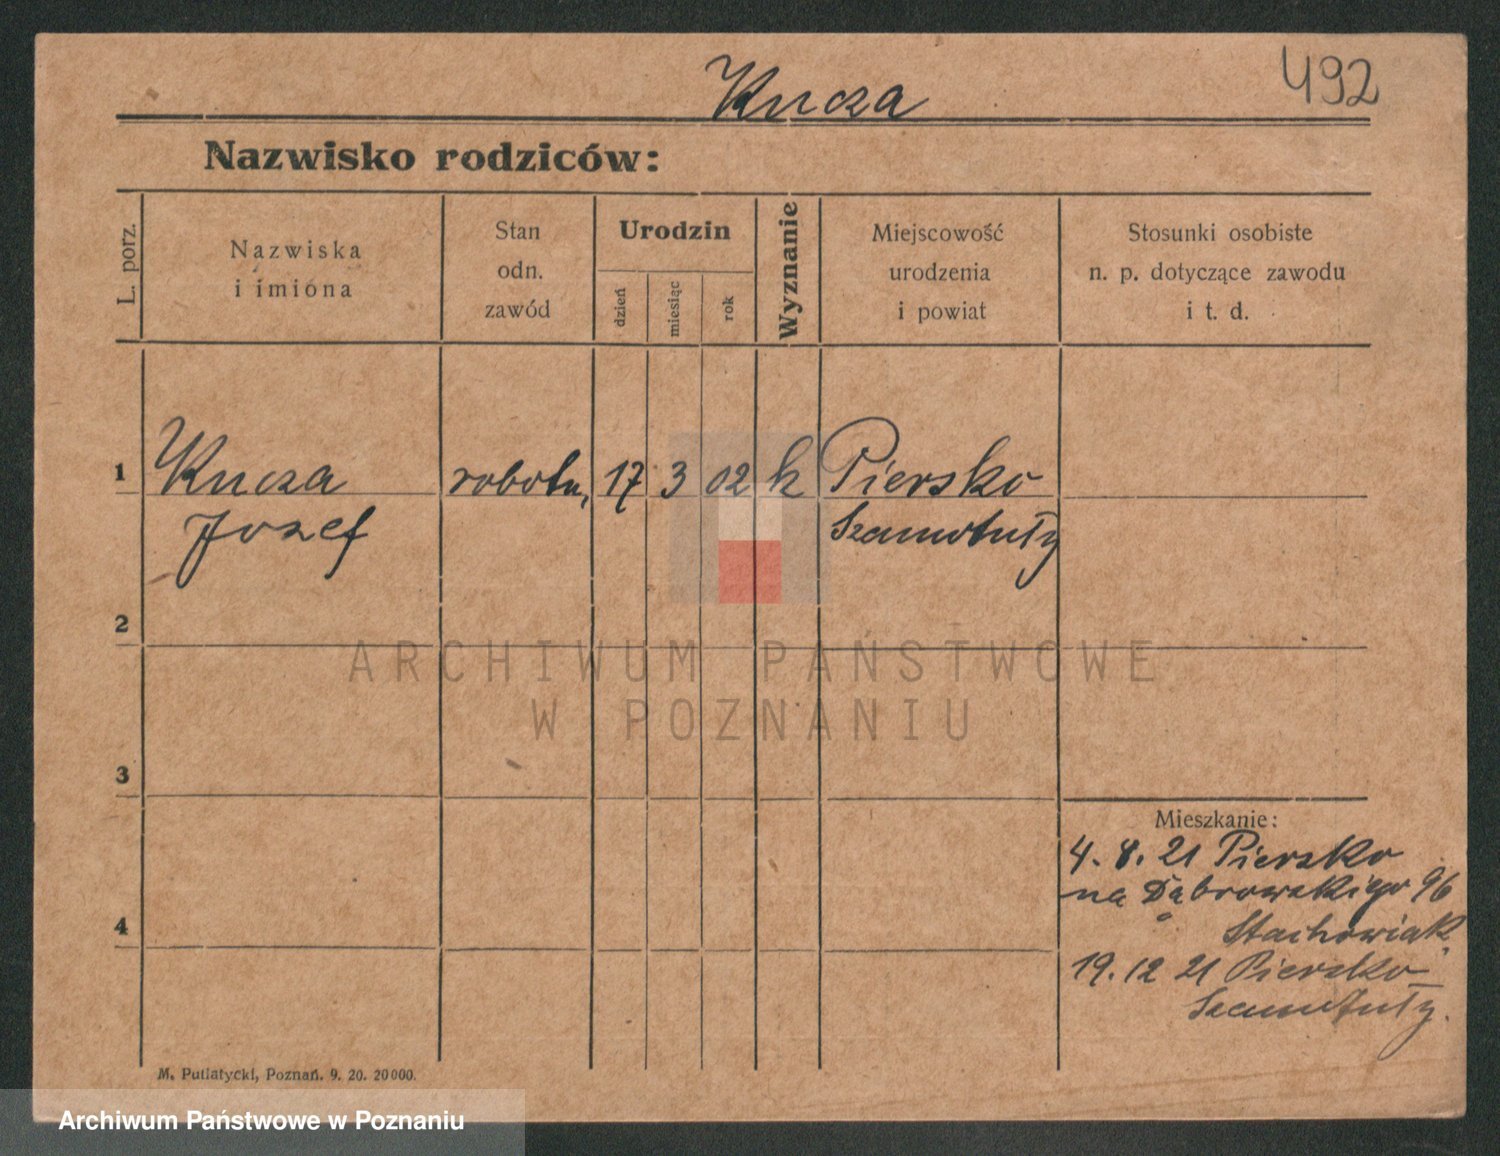 Kucza
492
Nazwisko rodziców:
L. porz.
Nazwiska
i imióna
Stan
odn.
zawód
Urodzin
dzień
miesiąc
rok
Wyznanie
Miejscowość
urodzenia
i powiat
Stosunki osobiste
n. p. dotyczące zawodu
i t. d.
1
Kucza
Jozef
robotn,
17
3
02
k
Piersko
Szamotuły
2
ARCHIWUM PAŃSTWOWE
W POZNANIU
3
Mieszkanie:
4. 8. 21 Piersko
na Dąbrowskiego 96
Stachowiak
4
19. 12 21 Piersko
Szamotuły.
M. Putiatycki, Poznań. 9. 20. 20000.
Archiwum Państwowe w Poznaniu